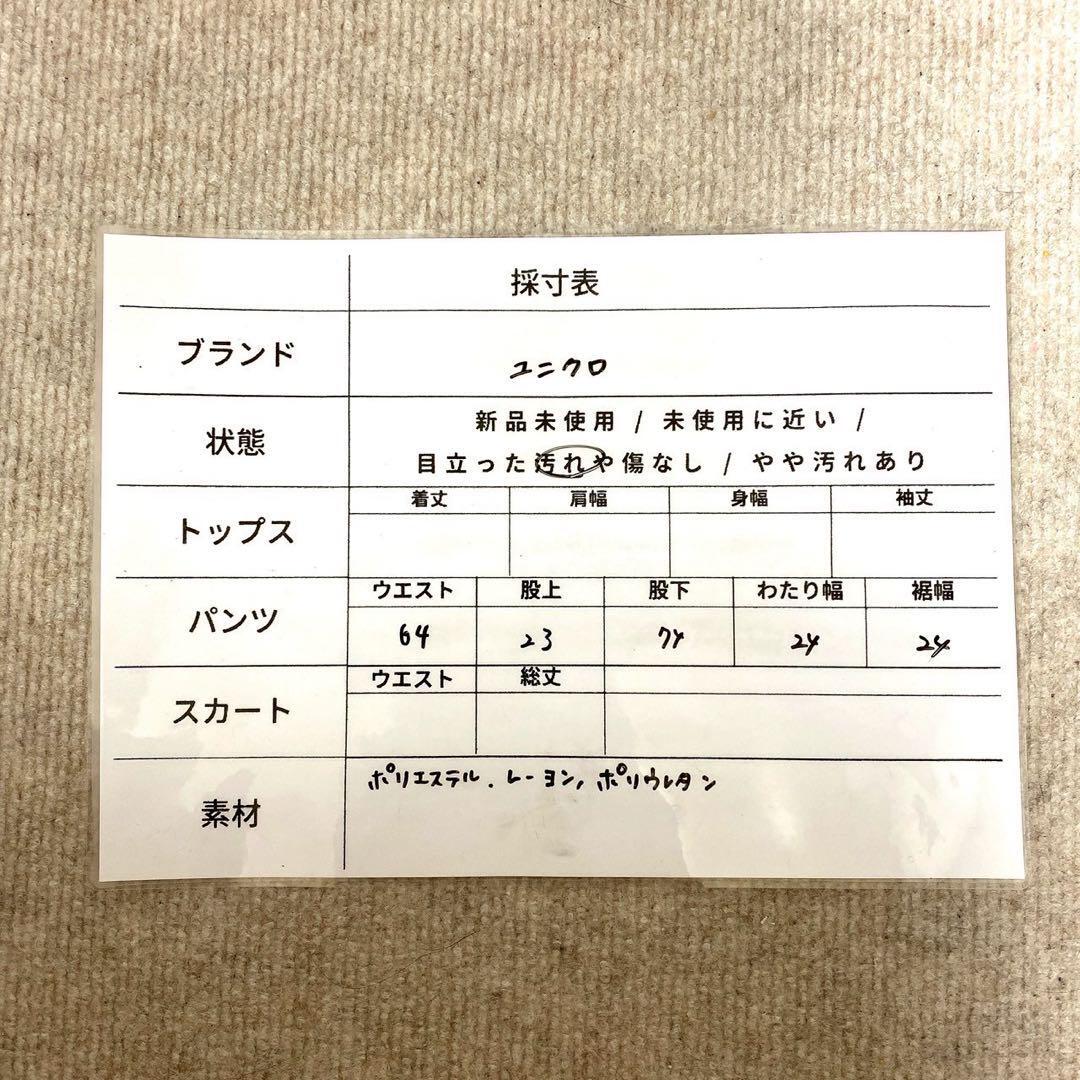 採寸表
ブランド
ユニクロ
状態
新品未使用 / 未使用に近い /
目立った汚れや傷なし / やや汚れあり
トップス
着丈 肩幅 身幅 袖丈
パンツ
ウエスト 股上 股下 わたり幅 裾幅
64 23 74 24 24
スカート
ウエスト 総丈
素材
ポリエステル. レーヨン, ポリウレタン